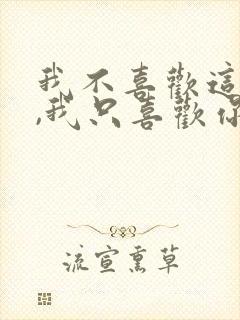 我不喜歡這
,我只喜歡你
流宣熏草